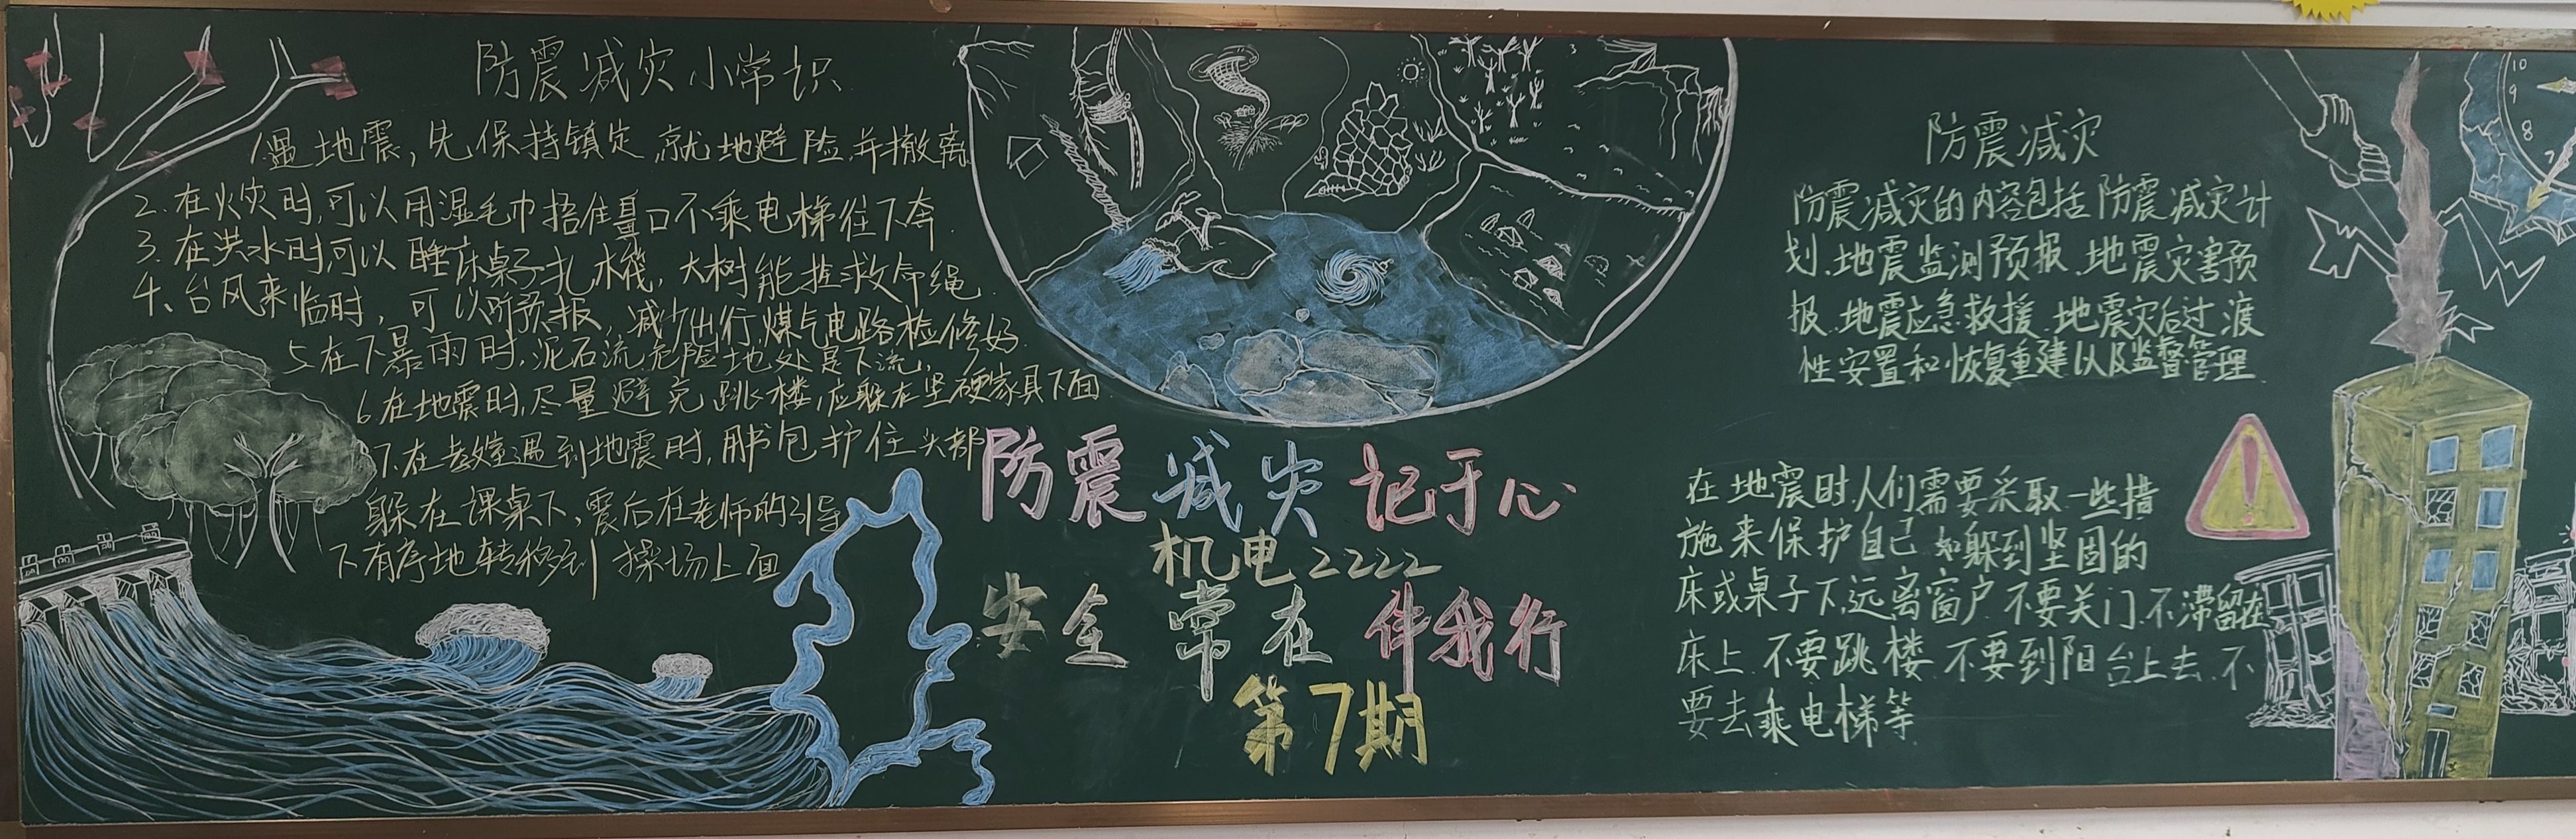 防震减灾小常识
1遇地震,先保持镇定,就地避险,并撤离
2.在火灾时,可以用湿毛巾捂住鼻口不乘电梯往下奔.
3.在洪水时可以睡床桌子扎木筏,大树能拴救命绳.
4、台风来临时,可以听预报,减少出行,煤气电路检修好.
5在下暴雨时,泥石流,危险地处是下流,
6.在地震时,尽量避免跳楼,应躲在坚硬家具下面
7.在教室遇到地震时,用书包护住头部
躲在课桌下,震后在老师的引导
下有序地转移到操场上面
防震减灾记于心
机电2222
安全常在伴我行
第7期
防震减灾
防震减灾的内容包括防震减灾计
划、地震监测预报、地震灾害预
报、地震应急救援、地震灾后过渡
性安置和恢复重建以及监督管理.
在地震时人们需要采取一些措
施来保护自己,如躲到坚固的
床或桌子下,远离窗户.不要关门.不滞留在
床上.不要跳楼.不要到阳台上去.不
要去乘电梯等
10
9
8
7